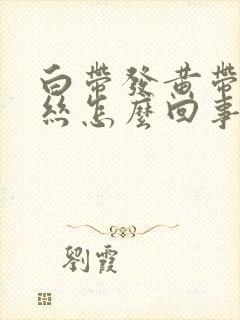 白帶發黄帶
絲怎麽回事
劉霞